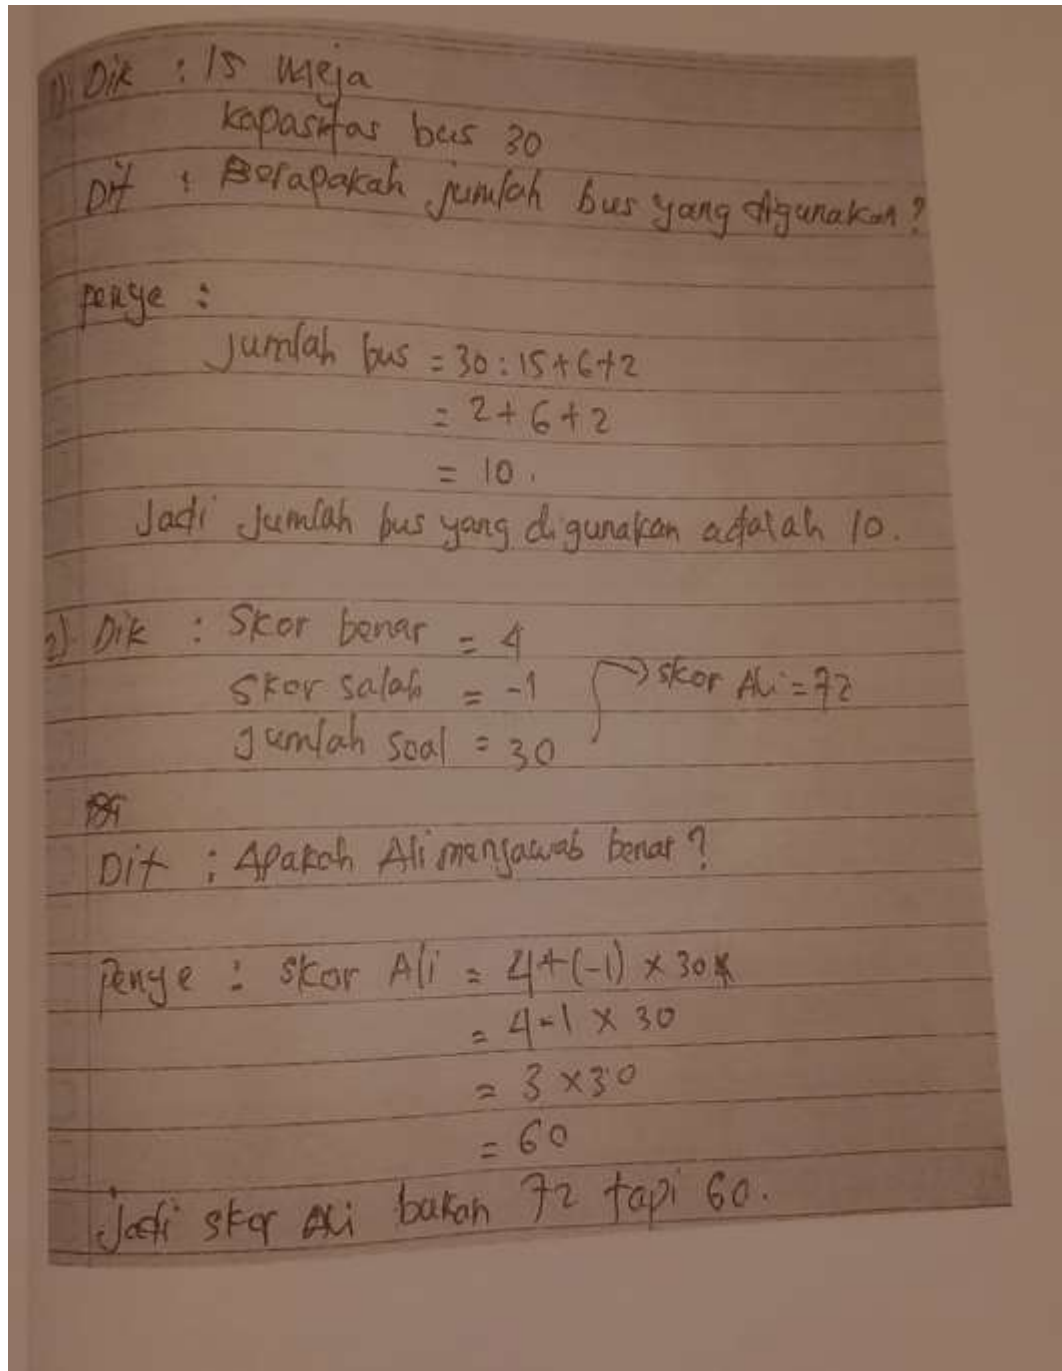 1) Dik : 15 meja
kapasitas bus 30
Dit : Berapakah jumlah bus yang digunakan?
penye :
Jumlah bus = 30 : 15 + 6 + 2
= 2 + 6 + 2
= 10 .
Jadi Jumlah bus yang di gunakan adalah 10.
2). Dik : Skor benar = 4
Skor salah = -1 → skor Ali = 72
Jumlah soal = 30
Dit : Apakah Ali menjawab benar ?
Penye : skor Ali = 4 + (-1) × 30
= 4 - 1 × 30
= 3 × 30
= 60
Jadi skor Ali bukan 72 tapi 60.